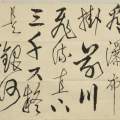 看瀑布
掛前川
飛流直下
三千尺疑
是銀河